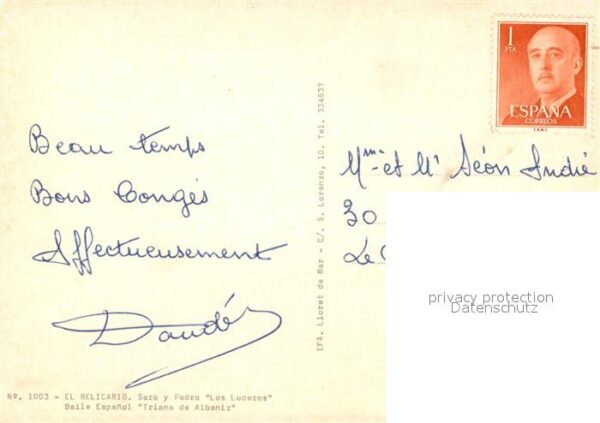 Beau temps
Bons Congés
Affectueusement
Daudé
Nº. 1003 - EL RELICARIO, Sara y Pedro "Los Luceros"
Baile Español "Triana de Albeniz"
EFA. Lloret de Mar - C/. S. Lorenzo, 10. Tel. 334537
1
PTA
ESPAÑA
CORREOS
Mme et Mr Séon André
30
Le
privacy protection
Datenschutz